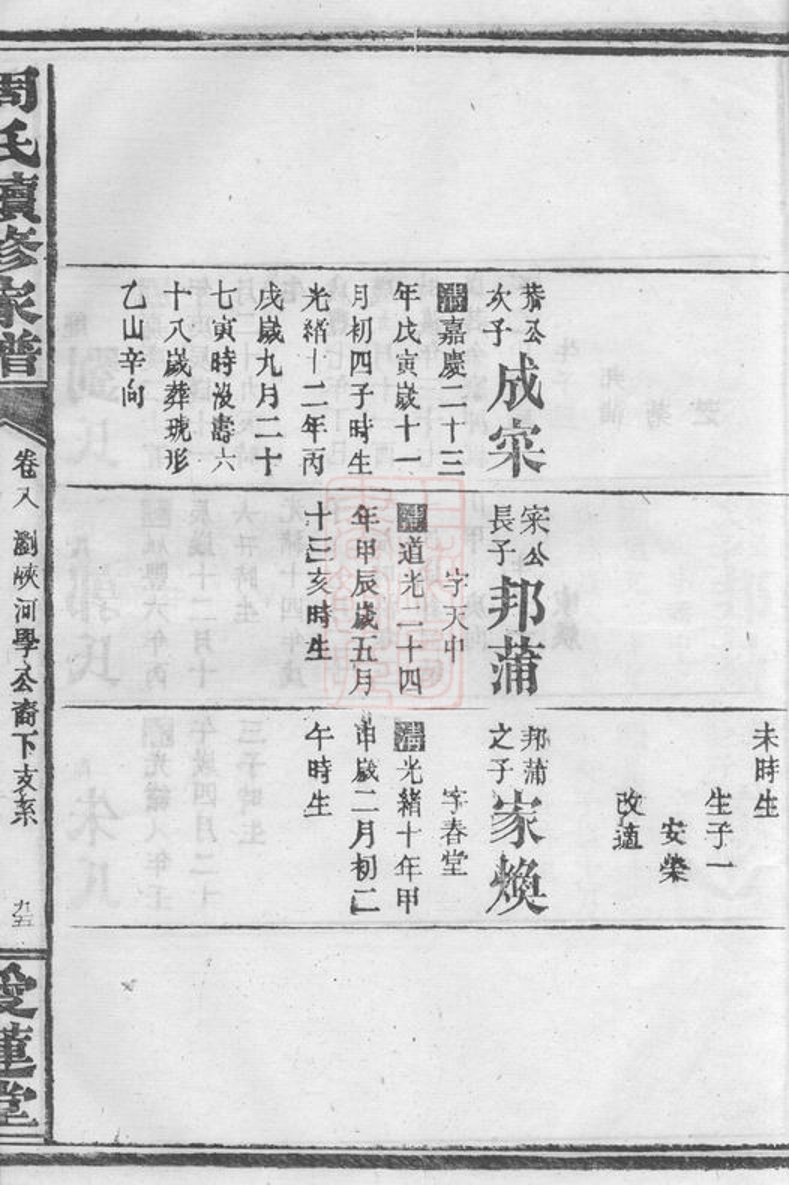 恭公
次子
成宷
清嘉慶二十三
年戊寅歲十一
月初四子時生
光緒十二年丙
戌歲九月二十
七寅時沒壽六
十八歲葬琥形
乙山辛向
宷公
長子
邦蒲
字天中
清道光二十四
年甲辰歲五月
十三亥時生
未時生
生子一
安榮
改適
邦蒲
之子
家煥
字春堂
清光緒十年甲
申歲二月初二
午時生
周氏續修家譜
卷八
瀏峽河學公裔下支系
九五
愛蓮堂